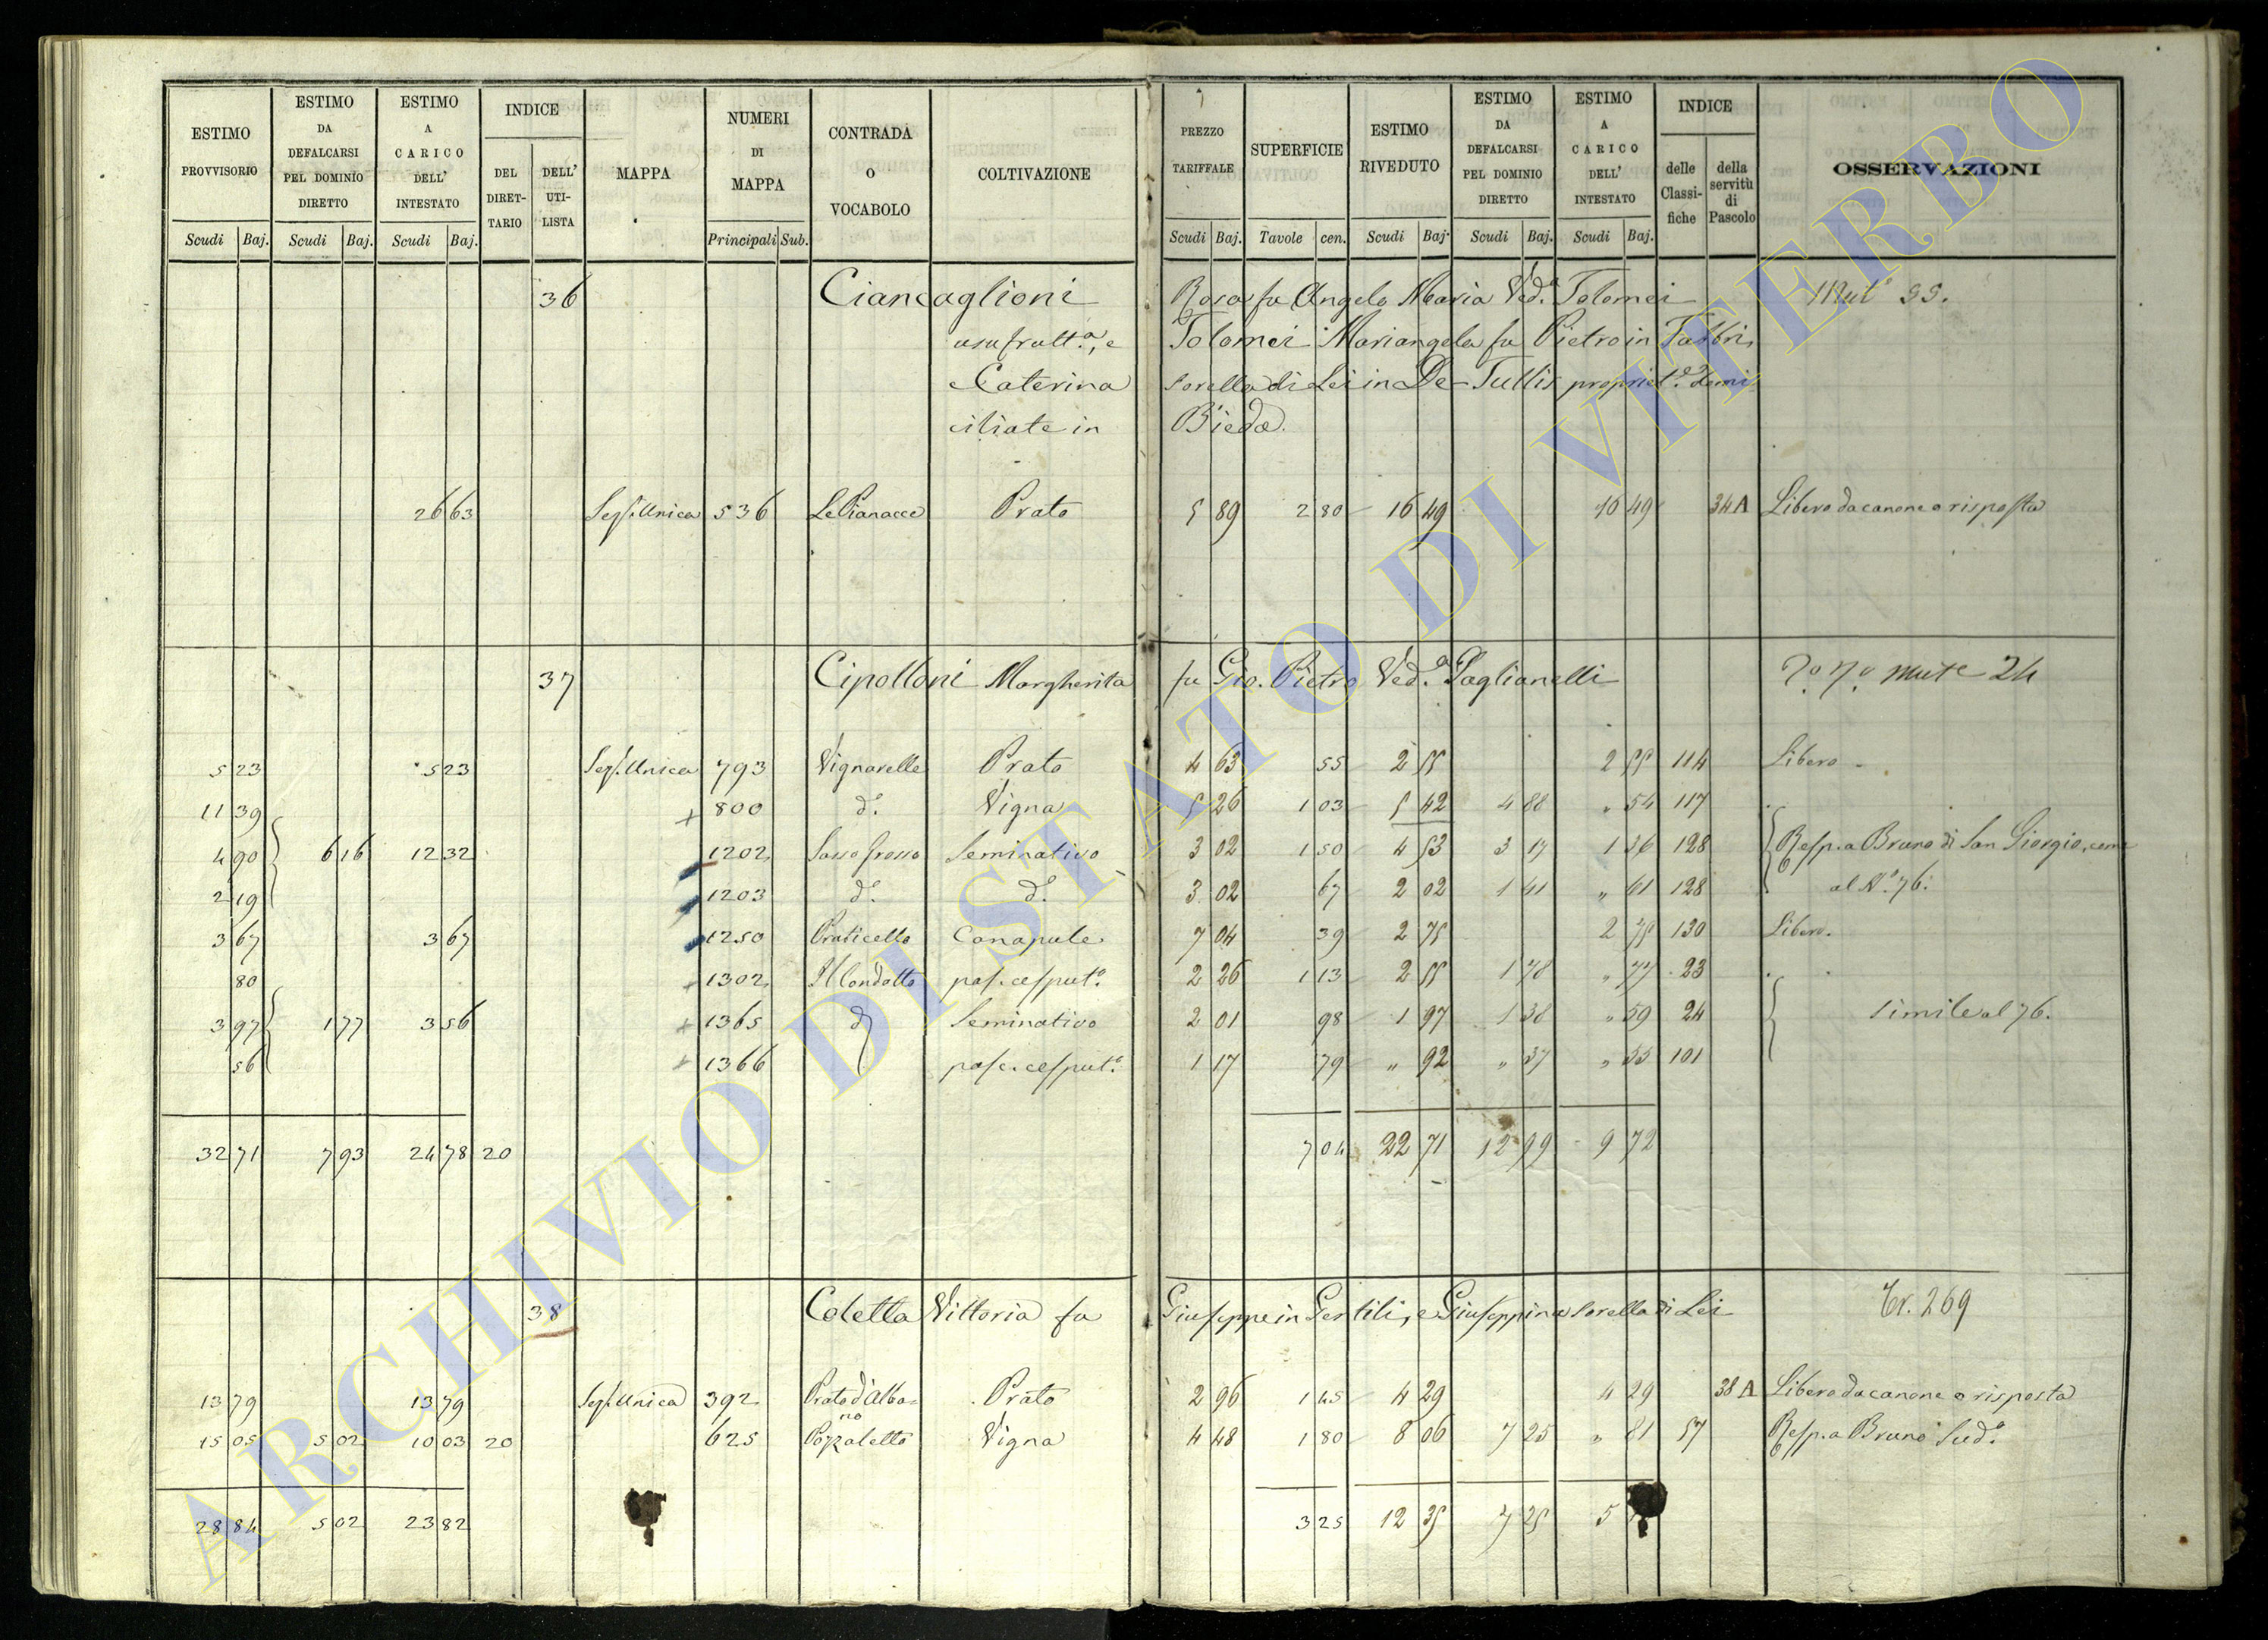 ESTIMO PROVVISORIO Scudi Baj. | ESTIMO DA DEFALCARSI PEL DOMINIO DIRETTO Scudi Baj. | ESTIMO A CARICO DELL' INTESTATO Scudi Baj. | INDICE DEL DIRET-TARIO | DELL' UTI-LISTA | MAPPA | NUMERI DI MAPPA Principali Sub. | CONTRADA O VOCABOLO | COLTIVAZIONE | PREZZO TARIFFALE Scudi Baj. | SUPERFICIE Tavole cen. | ESTIMO RIVEDUTO Scudi Baj. | ESTIMO DA DEFALCARSI PEL DOMINIO DIRETTO Scudi Baj. | ESTIMO A CARICO DELL' INTESTATO Scudi Baj. | INDICE delle Classi-fiche | della servitù di Pascolo | OSSERVAZIONI
36 Ciancaglioni Rosa fu Angelo Maria Ved.a Tolomei
usufrutt.a, e Tolomei Mariangela fu Pietro in Fabbri,
e Caterina sorella di Lei in De-Tullis propriet.e domi
ciliate in Bieda.
26 63 Sez.e Unica 536 Le Pianacce Prato 5 89 2 80 16 49 16 49 34A Libero da canone o risposta
37 Cipolloni Margherita fu Gio. Pietro Ved.a Paglianelli
5 23 5 23 Sez.e Unica 793 Vignarelle Prato 4 63 55 2 55 2 55 114 Libero
11 39 + 800 d.o Vigna 5 26 1 03 5 42 4 88 " 54 117
4 90 6 16 12 32 1202 Sasso grosso Seminativo 3 02 1 50 4 53 3 17 1 36 128 Resp. a Bruno di San Giorgio, come
2 19 1203 d.o d.o 3 02 67 2 02 1 41 " 61 128 al N.o 76.
3 67 3 67 1250 Praticello Canapule 7 04 39 2 75 2 75 130 Libero.
80 + 1302 Il Condotto pas. cesput.o 2 26 1 13 2 55 1 78 " 77 23
3 97 1 77 3 56 + 1365 d.o Seminativo 2 01 98 1 97 1 38 " 59 24 Simile al 76.
56 + 1366 pas. cesput.o 1 17 79 " 92 " 37 " 55 101
32 71 7 93 24 78 20 7 04 22 71 12 99 9 72
38 Coletta Vittoria fu Giuseppe in Gentili, e Giuseppina sorella di Lei Tr. 269
13 79 13 79 Sez.e Unica 392 Prato d'Alba=no Prato 2 96 1 45 4 29 4 29 38 A Libero da canone o risposta
15 05 5 02 10 03 20 625 Pozzaletto Vigna 4 48 1 80 8 06 7 25 " 81 57 Resp. a Bruno Sud.o
28 84 5 02 23 82 3 25 12 35 7 25 5
ARCHIVIO DI STATO DI VITERBO